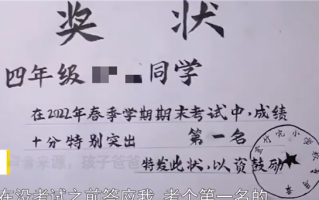 奖状
四年级 同学
在2022年春季学期期末考试中,成绩
十分特别突出 第一名
特发此状,以资鼓励
在没考试之前答应我 考个第一名的